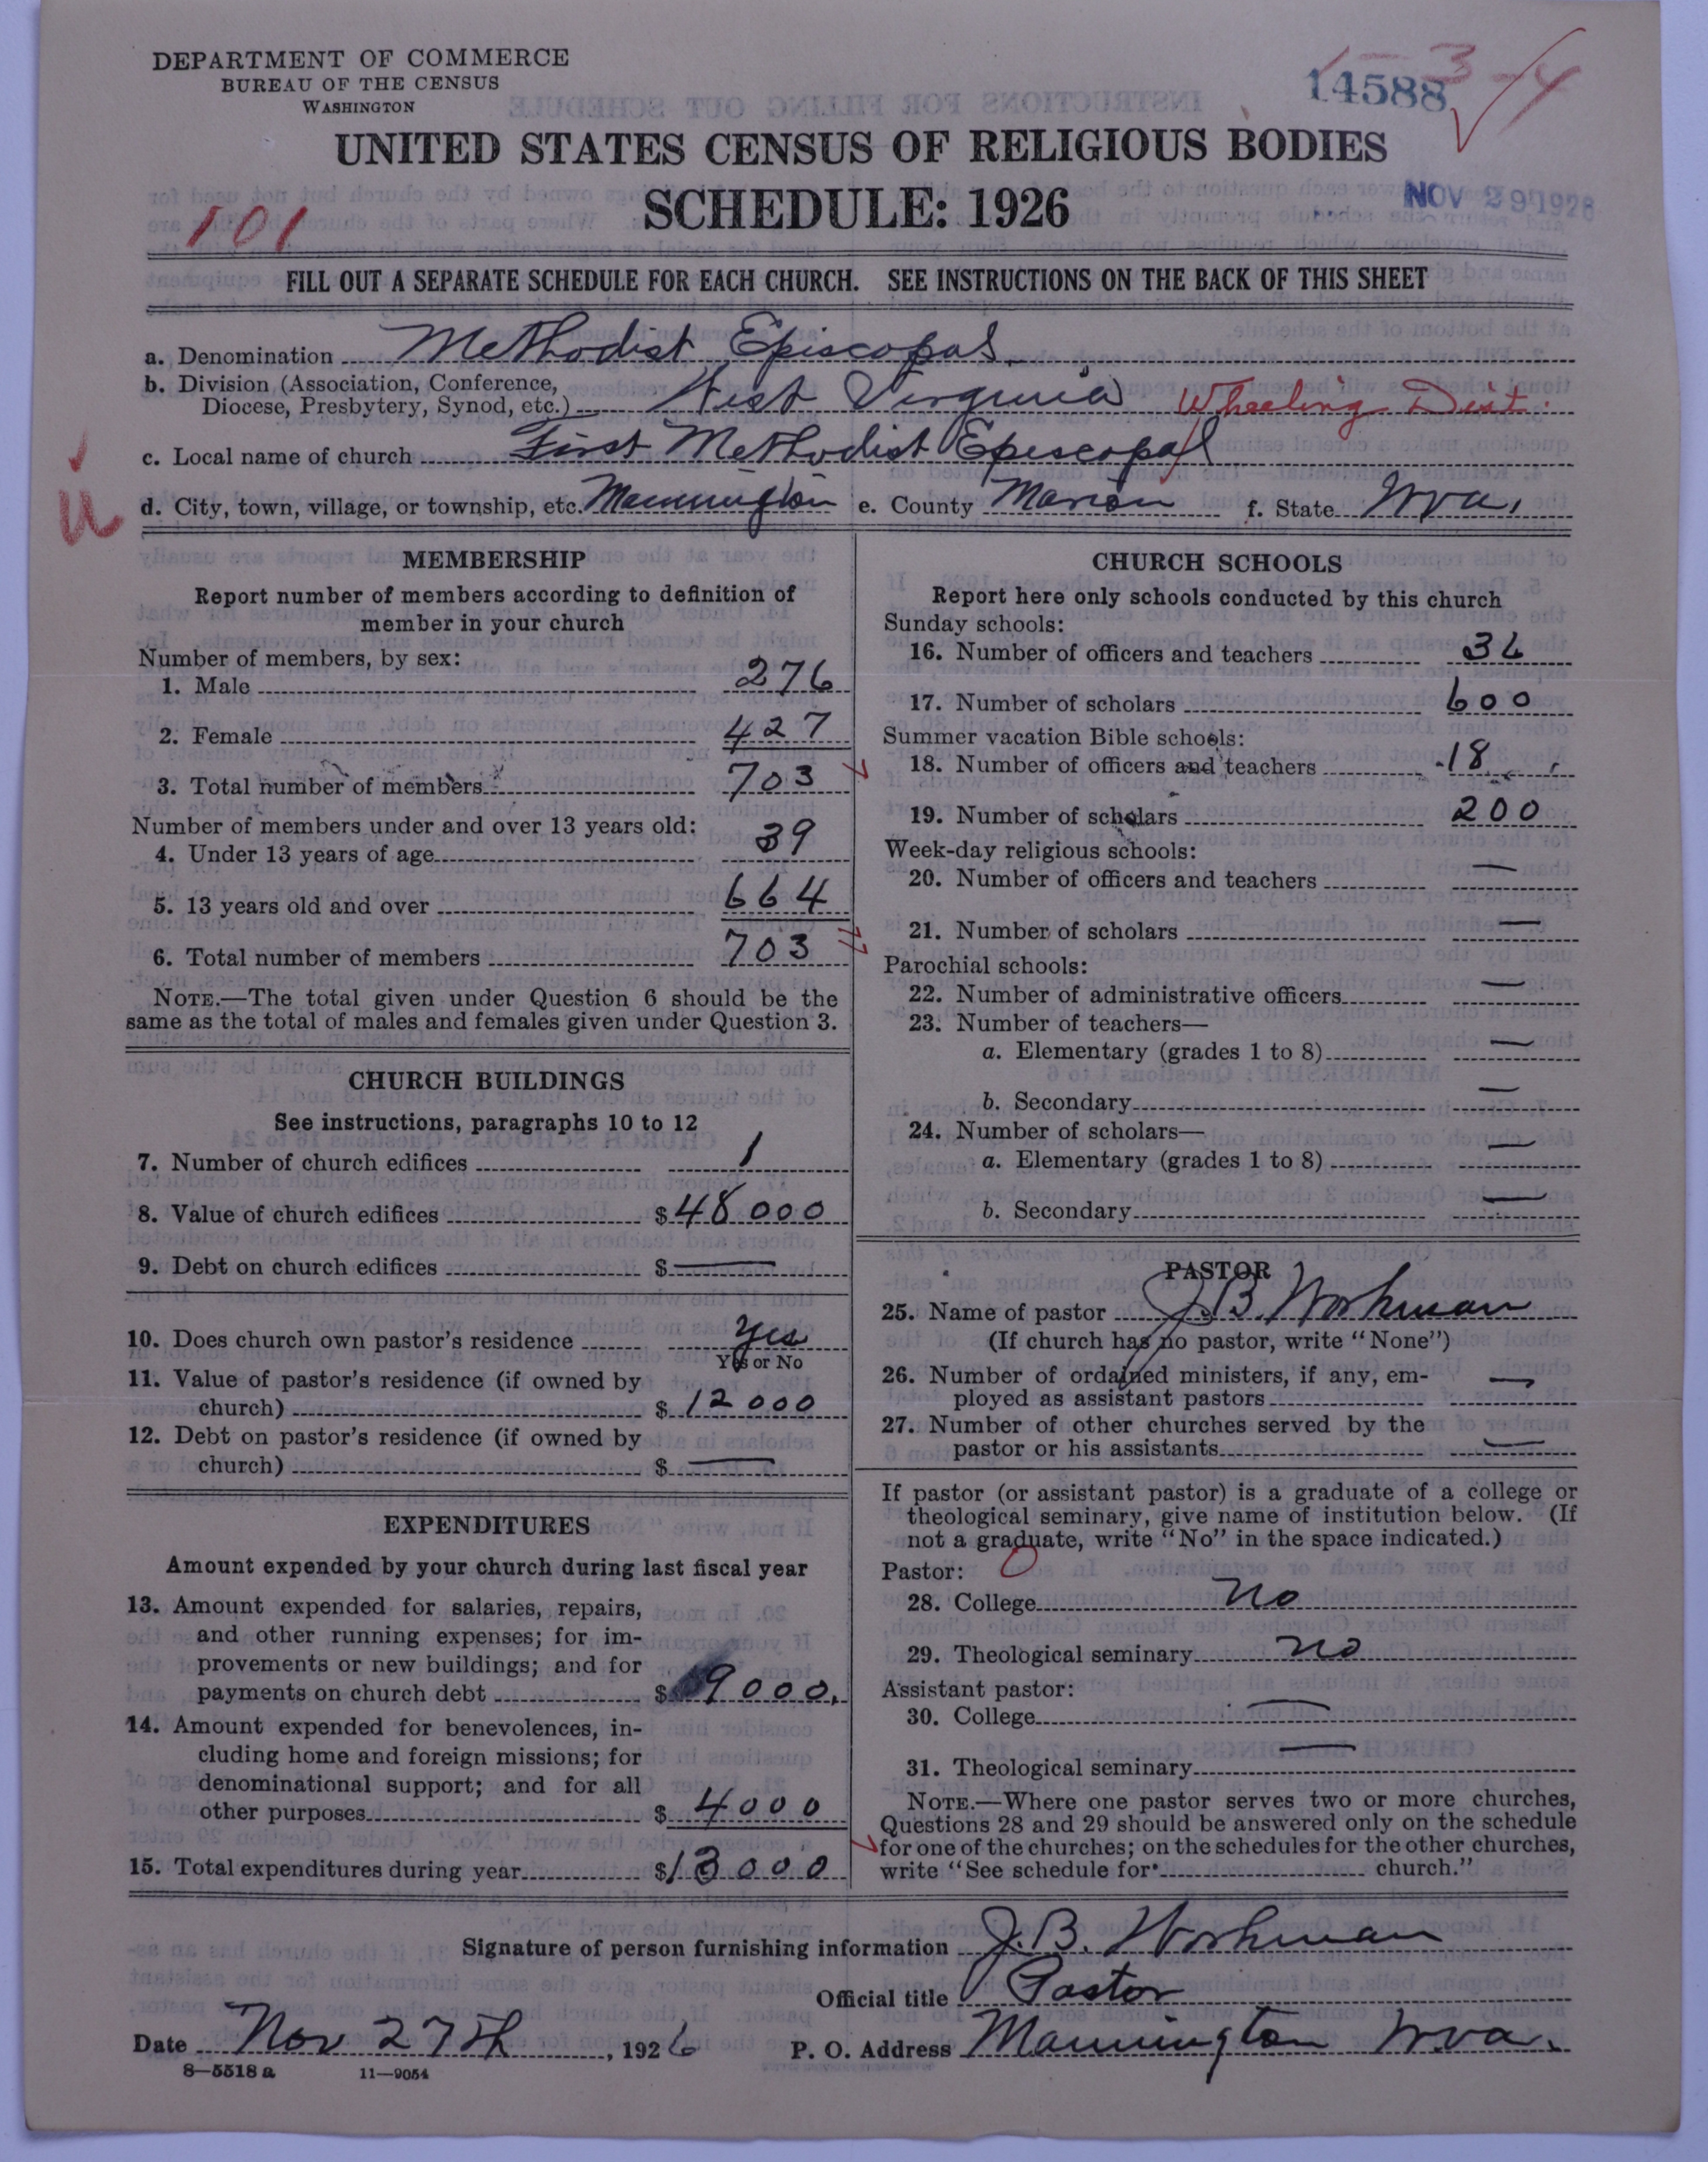 DEPARTMENT OF COMMERCE
BUREAU OF THE CENSUS
WASHINGTON
14588
3-4
UNITED STATES CENSUS OF RELIGIOUS BODIES
SCHEDULE: 1926
NOV 29 1926
101
FILL OUT A SEPARATE SCHEDULE FOR EACH CHURCH. SEE INSTRUCTIONS ON THE BACK OF THIS SHEET
a. Denomination Methodist Episcopal
b. Division (Association, Conference,
Diocese, Presbytery, Synod, etc.) West Virginia Wheeling Dist.
c. Local name of church First Methodist Episcopal
d. City, town, village, or township, etc. Mannington e. County Marion f. State Wva.
MEMBERSHIP
Report number of members according to definition of
member in your church
Number of members, by sex:
1. Male 276
2. Female 427
3. Total number of members 703
Number of members under and over 13 years old:
4. Under 13 years of age 39
5. 13 years old and over 664
6. Total number of members 703
NOTE.—The total given under Question 6 should be the
same as the total of males and females given under Question 3.
CHURCH BUILDINGS
See instructions, paragraphs 10 to 12
7. Number of church edifices 1
8. Value of church edifices $48000
9. Debt on church edifices $ —
10. Does church own pastor's residence Yes
Yes or No
11. Value of pastor's residence (if owned by
church) $ 12000
12. Debt on pastor's residence (if owned by
church) $ —
EXPENDITURES
Amount expended by your church during last fiscal year
13. Amount expended for salaries, repairs,
and other running expenses; for im-
provements or new buildings; and for
payments on church debt $ 9000.
14. Amount expended for benevolences, in-
cluding home and foreign missions; for
denominational support; and for all
other purposes $ 4000
15. Total expenditures during year $13000
CHURCH SCHOOLS
Report here only schools conducted by this church
Sunday schools:
16. Number of officers and teachers 36
17. Number of scholars 600
Summer vacation Bible schools:
18. Number of officers and teachers 18
19. Number of scholars 200
Week-day religious schools:
20. Number of officers and teachers —
21. Number of scholars —
Parochial schools:
22. Number of administrative officers —
23. Number of teachers—
a. Elementary (grades 1 to 8) —
b. Secondary —
24. Number of scholars—
a. Elementary (grades 1 to 8) —
b. Secondary —
PASTOR
25. Name of pastor J.B. Workman
(If church has no pastor, write "None")
26. Number of ordained ministers, if any, em-
ployed as assistant pastors —
27. Number of other churches served by the
pastor or his assistants —
If pastor (or assistant pastor) is a graduate of a college or
theological seminary, give name of institution below. (If
not a graduate, write "No" in the space indicated.)
Pastor: 0
28. College No
29. Theological seminary No
Assistant pastor:
30. College —
31. Theological seminary —
NOTE.—Where one pastor serves two or more churches,
Questions 28 and 29 should be answered only on the schedule
for one of the churches; on the schedules for the other churches,
write "See schedule for church."
Signature of person furnishing information J.B. Workman
Official title Pastor
Date Nov 27th, 1926 P. O. Address Mannington Wva.
8—5518 a 11—9054